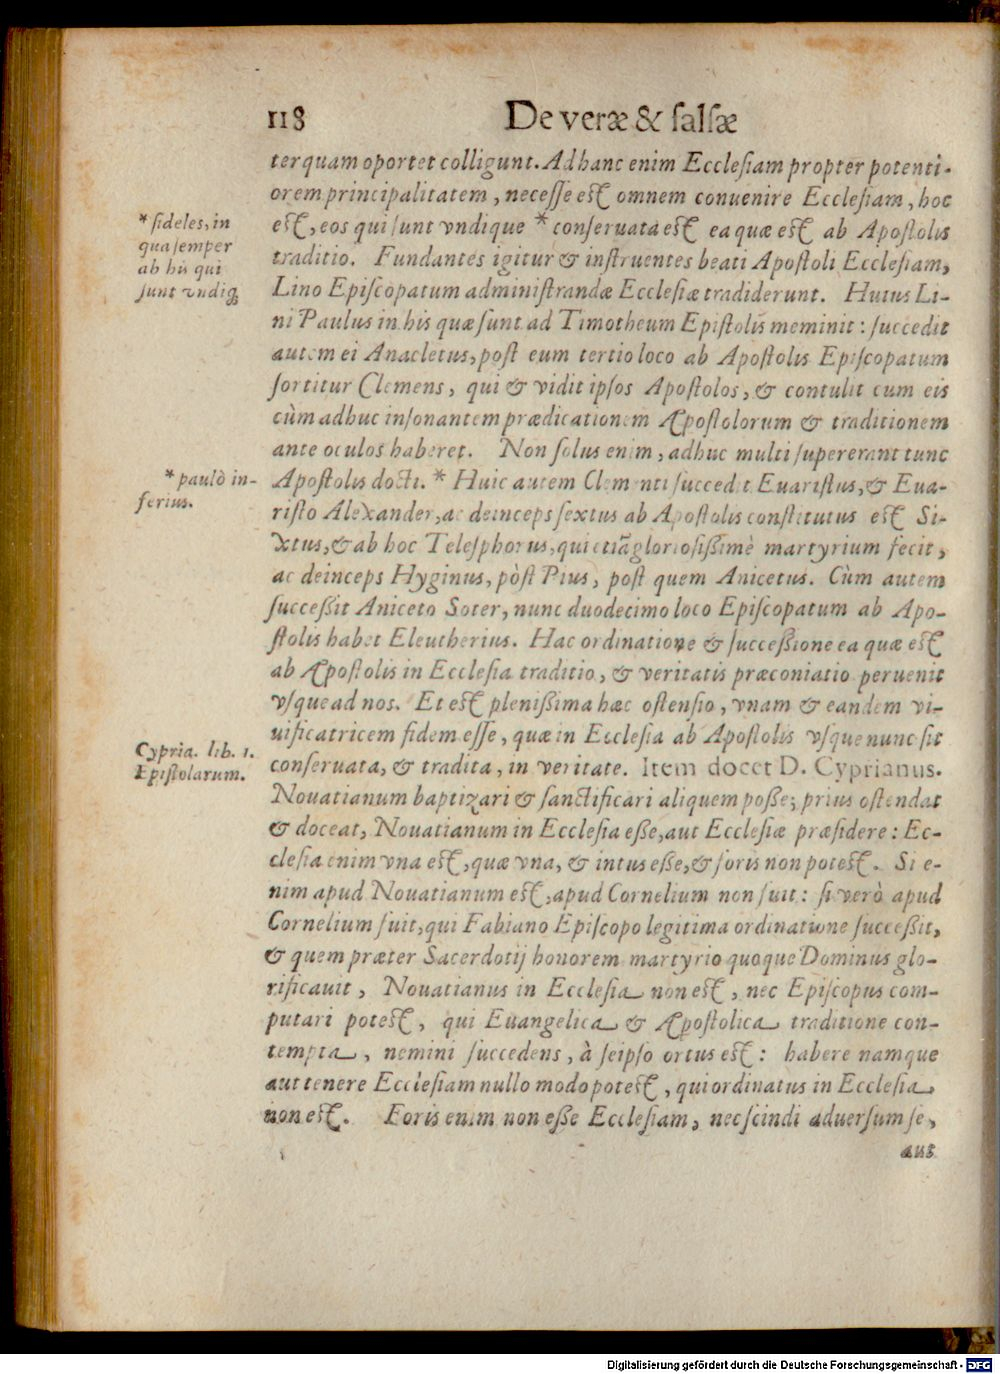 118 De veræ & falsæ
ter quam oportet colligunt. Ad hanc enim Ecclesiam propter potenti-
orem principalitatem, necesse est omnem conuenire Ecclesiam, hoc
est, eos qui sunt vndique * conseruata est ea quæ est ab Apostolis
traditio. Fundantes igitur & instruentes beati Apostoli Ecclesiam,
Lino Episcopatum administrandæ Ecclesiæ tradiderunt. Huius Li-
ni Paulus in his quæ sunt ad Timotheum Epistolis meminit: succedit
autem ei Anacletus, post eum tertio loco ab Apostolis Episcopatum
sortitur Clemens, qui & vidit ipsos Apostolos, & contulit cum eis
cùm adhuc insonantem prædicationem Apostolorum & traditionem
ante oculos haberet. Non solus enim, adhuc multi supererant tunc
Apostolis docti. * Huic autem Clementi succedit Euaristus, & Eua-
risto Alexander, ac deinceps sextus ab Apostolis constitutus est Si-
xtus, & ab hoc Telesphorus, qui etiã gloriosissimè martyrium fecit,
ac deinceps Hyginus, pòst Pius, post quem Anicetus. Cùm autem
successit Aniceto Soter, nunc duodecimo loco Episcopatum ab Apo-
stolis habet Eleutherius. Hac ordinatione & successione ea quæ est
ab Apostolis in Ecclesia traditio, & veritatis præconiatio peruenit
vsque ad nos. Et est plenissima hæc ostensio, vnam & eandem vi-
uificatricem fidem esse, quæ in Ecclesia ab Apostolis vsque nunc sit
conseruata, & tradita, in veritate. Item docet D. Cyprianus.
Nouatianum baptizari & sanctificari aliquem posse; prius ostendat
& doceat, Nouatianum in Ecclesia esse, aut Ecclesiæ præsidere: Ec-
clesia enim vna est, quæ vna, & intus esse, & foris non potest. Si e-
nim apud Nouatianum est, apud Cornelium non fuit: si verò apud
Cornelium fuit, qui Fabiano Episcopo legitima ordinatione successit,
& quem præter Sacerdotij honorem martyrio quoque Dominus glo-
rificauit, Nouatianus in Ecclesia non est, nec Episcopus com-
putari potest, qui Euangelica & Apostolica traditione con-
tempta, nemini succedens, à seipso ortus est: habere namque
aut tenere Ecclesiam nullo modo potest, qui ordinatus in Ecclesia
non est. Foris enim non esse Ecclesiam, nec scindi aduersum se,
aut
* fideles, in
qua semper
ab his qui
sunt vndiq;
* paulò in-
ferius.
Cypria. lib. 1.
Epistolarum.
Digitalisierung gefördert durch die Deutsche Forschungsgemeinschaft - DFG